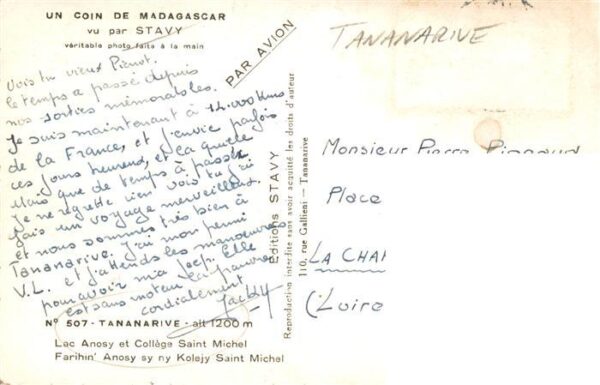 UN COIN DE MADAGASCAR
vu par STAVY
véritable photo faite à la main
PAR AVION
TANANARIVE
Vois tu vieux Pierrot.
le temps a passé depuis
nos sorties mémorables.
Je suis maintenant à 12.000 Kms
de la France, et j'envie parfois
ces jours heureux, et
Mais que de temps à passer
Je ne regrette rien vois tu j'ai
fais un voyage merveilleux
et nous sommes très bien à
Tananarive. J'ai mon permi
V.L. et j'attends les manœuvres
pour avoir ma Jeep. Elle
est sans moteur la pauvre
cordialement
Jacky
Nº 507 - TANANARIVE - alt 1200 m
Lac Anosy et Collège Saint Michel
Farihin' Anosy sy ny Kolejy Saint Michel
Editions STAVY
Reproduction interdite sans avoir acquitté les droits d'auteur
110, rue Gallieni - Tananarive
Monsieur Pierre
Place
LA CHA
(Loire